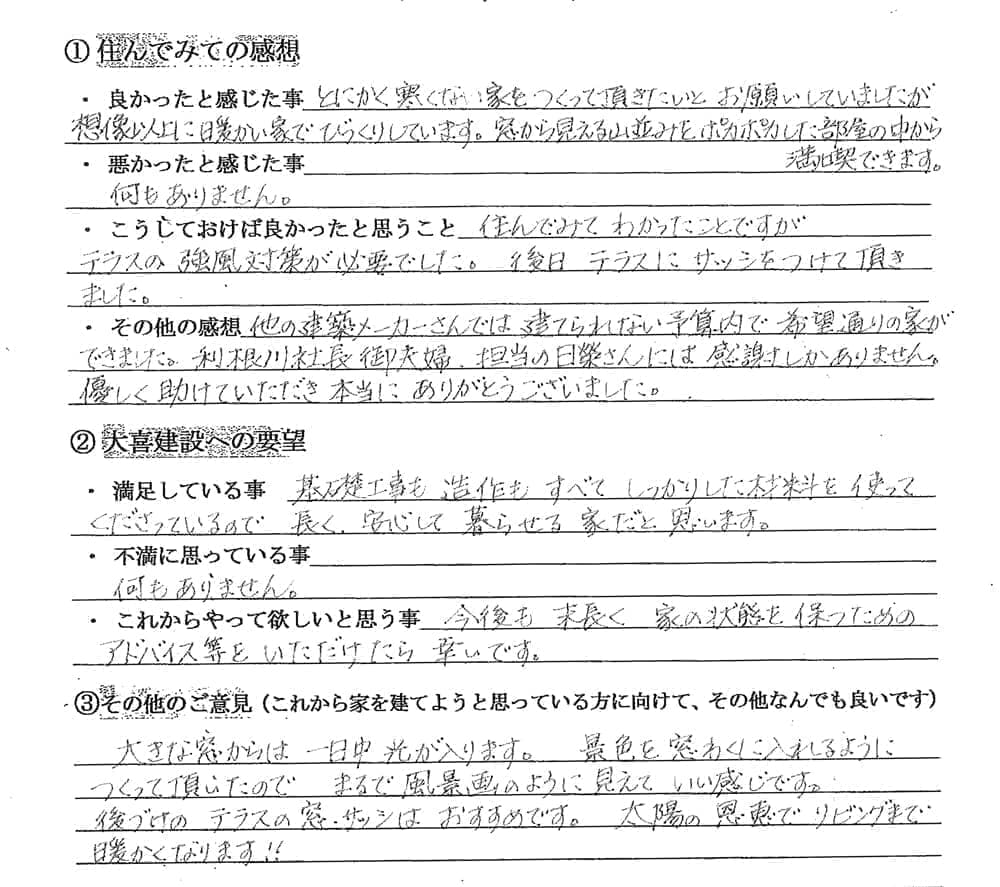 ① 住んでみての感想
・ 良かったと感じた事 とにかく寒くない家をつくって頂きたいと お願いしていましたが
想像以上に暖かい家でびっくりしています。窓から見える山並みをポカポカした部屋の中から
満喫できます。
・ 悪かったと感じた事
何もありません。
・ こうしておけば良かったと思うこと 住んでみて わかったことですが
テラスの 強風対策が必要でした。 後日 テラスに サッシをつけて頂き
ました。
・ その他の感想 他の建築メーカーさんでは 建てられない予算内で 希望通りの家が
できました。利根川社長御夫婦、担当の日榮さんには 感謝しかありません。
優しく助けていただき 本当に ありがとうございました。
② 大喜建設への要望
・ 満足している事 基礎工事も 造作も すべて しっかりした材料を 使って
くださっているので 長く、安心して 暮らせる 家だと 思います。
・ 不満に思っている事
何もありません。
・ これからやって欲しいと思う事 今後も 末長く 家の状態を 保つための
アドバイス等を いただけたら 幸いです。
③その他のご意見（これから家を建てようと思っている方に向けて、その他なんでも良いです）
大きな窓からは 一日中 光が入ります。 景色を 窓わくに入れるように
つくって頂いたので まるで 風景画のように 見えて いい感じです。
後づけの テラスの 窓・サッシは おすすめです。 太陽の 恩恵で リビングまで
暖かくなります!!